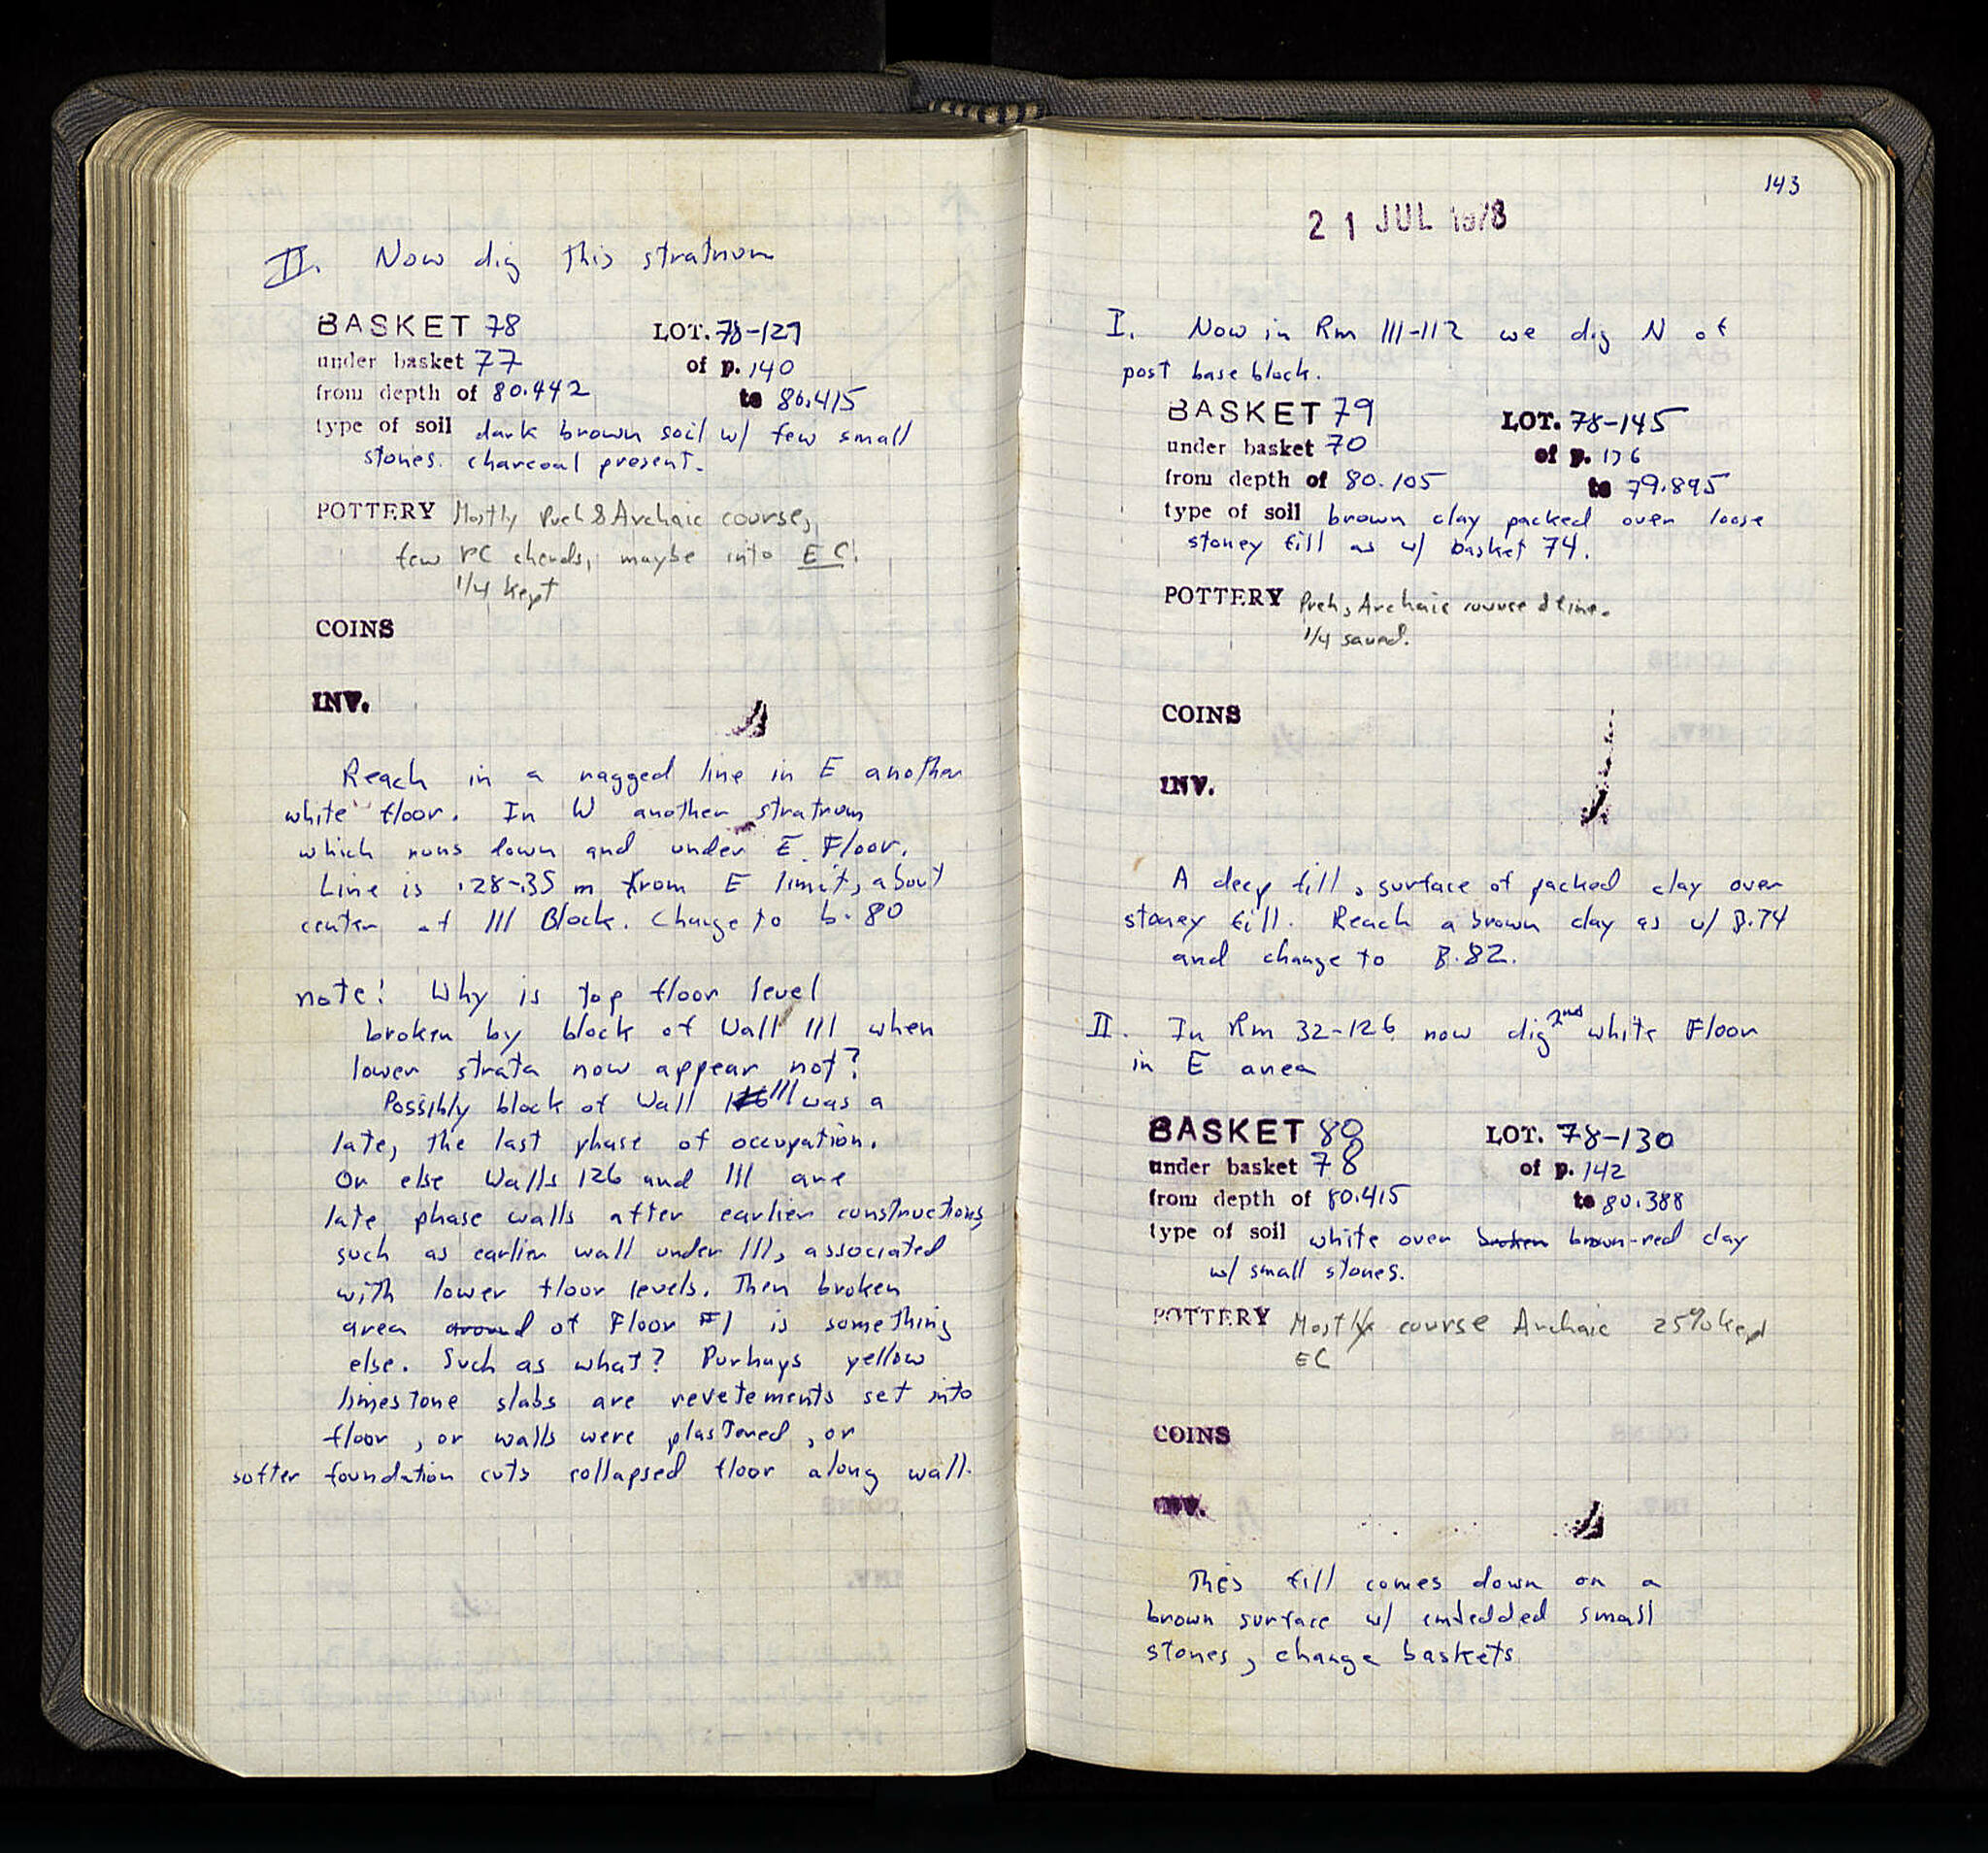 II. Now dig this stratum
BASKET 78 LOT. 78-127
under basket 77 of p. 140
from depth of 80.442 to 80.415
type of soil dark brown soil w/ few small
stones. charcoal present.
POTTERY Mostly Preh & Archaic course,
few PC sherds, maybe into EC.
1/4 kept
COINS
INV.
Reach in a ragged line in E another
white floor. In W another stratum
which runs down and under E Floor.
Line is .28-.35 m from E limit, about
center of 111 Block. Change to b. 80
note! Why is top floor level
broken by block of Wall 111 when
lower strata now appear not?
Possibly block of Wall 126 111 was a
late, the last phase of occupation.
Or else Walls 126 and 111 are
late phase walls after earlier constructions,
such as earlier wall under 111, associated
with lower floor levels. Then broken
area around of Floor #1 is something
else. Such as what? Purhaps yellow
limestone slabs are revetements set into
floor, or walls were plastered, or
softer foundation cuts collapsed floor along wall.
143
21 JUL 1978
I. Now in Rm 111-112 we dig N of
post base block.
BASKET 79 LOT. 78-145
under basket 70 of p. 136
from depth of 80.105 to 79.895
type of soil brown clay packed over loose
stoney fill as w/ basket 74.
POTTERY Preh, Archaic course & fine.
1/4 saved.
COINS
INV.
A deep fill, surface of packed clay over
stoney fill. Reach a brown clay as w/ B.74
and change to B.82.
II. In Rm 32-126 now dig 2nd white Floor
in E area
BASKET 80 LOT. 78-130
under basket 78 of p. 142
from depth of 80.415 to 80.388
type of soil white over broken brown-red clay
w/ small stones.
POTTERY Mostly course Archaic 25% kept
EC
COINS
INV.
This fill comes down on a
brown surface w/ imbedded small
stones, change baskets